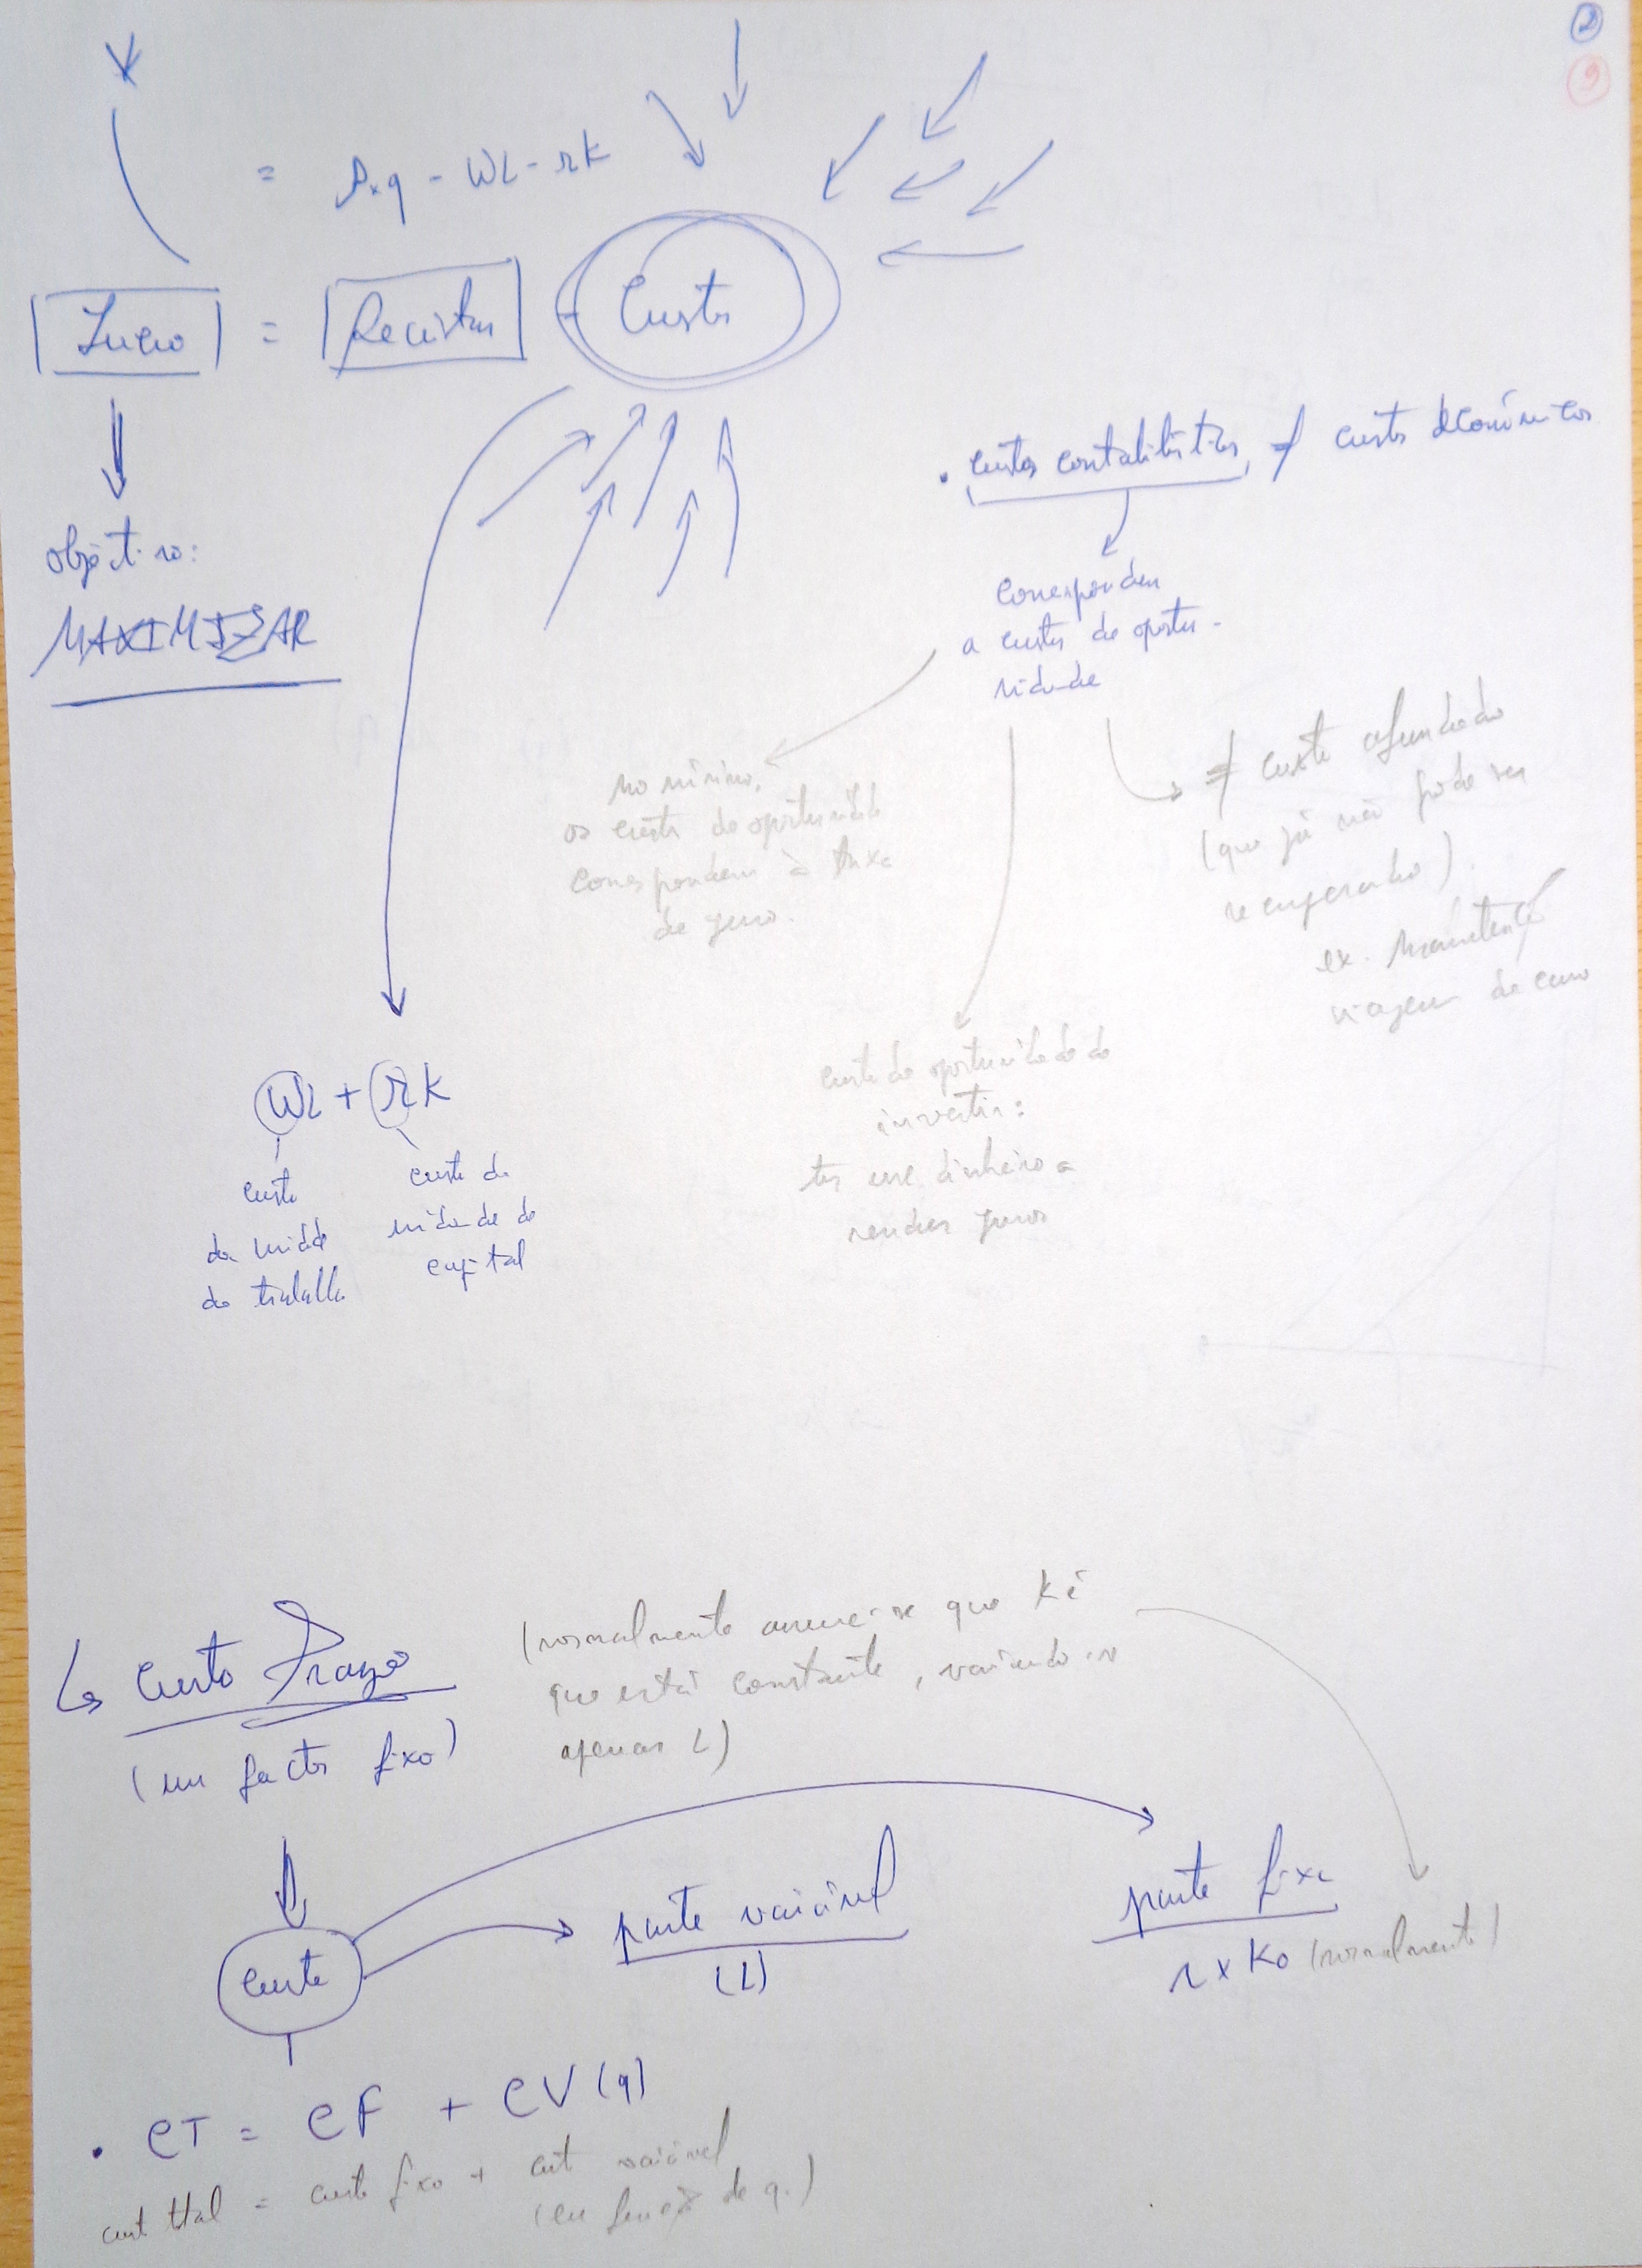 2
9
= p×q - WL - rK
Lucro = Receitas - Custos
objectivo:
MAXIMIZAR
. custos contabilísticos ≠ custos económicos
correspondem
a custos de oportu-
nidade
no mínimo,
os custos de oportunidade
correspondem à taxa
de juro.
≠ custo afundado
(que já não pode ser
recuperado)
ex. manutenção
viagem de curso
custo de oportunidade de
investir:
ter esse dinheiro a
render juros
WL + rK
custo
da unidde
de trabalho
custo da
unidade de
capital
↳ Curto Prazo
(um factor fixo)
(normalmente assume-se que K é
que está constante, variando-se
apenas L)
custo
parte variável
(L)
parte fixa
r × K0 (normalmente)
. CT = CF + CV(q)
cust total = custo fixo + cust variável
(em função de q.)